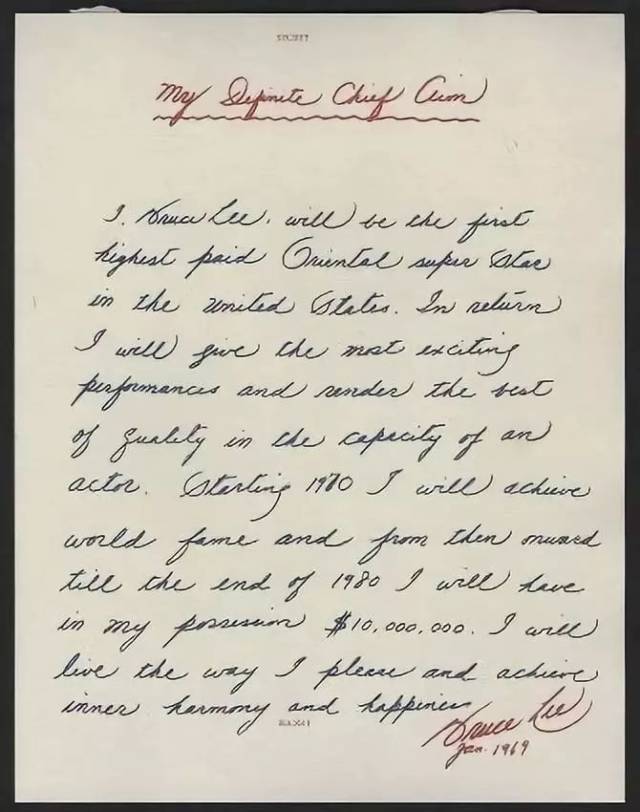 SECRET
My Definite Chief Aim
I, Bruce Lee, will be the first
highest paid Oriental super star
in the United States. In return
I will give the most exciting
performances and render the best
of quality in the capacity of an
actor. Starting 1970 I will achieve
world fame and from then onward
till the end of 1980 I will have
in my possession $10,000,000. I will
live the way I please and achieve
inner harmony and happiness
Bruce Lee
Jan. 1969